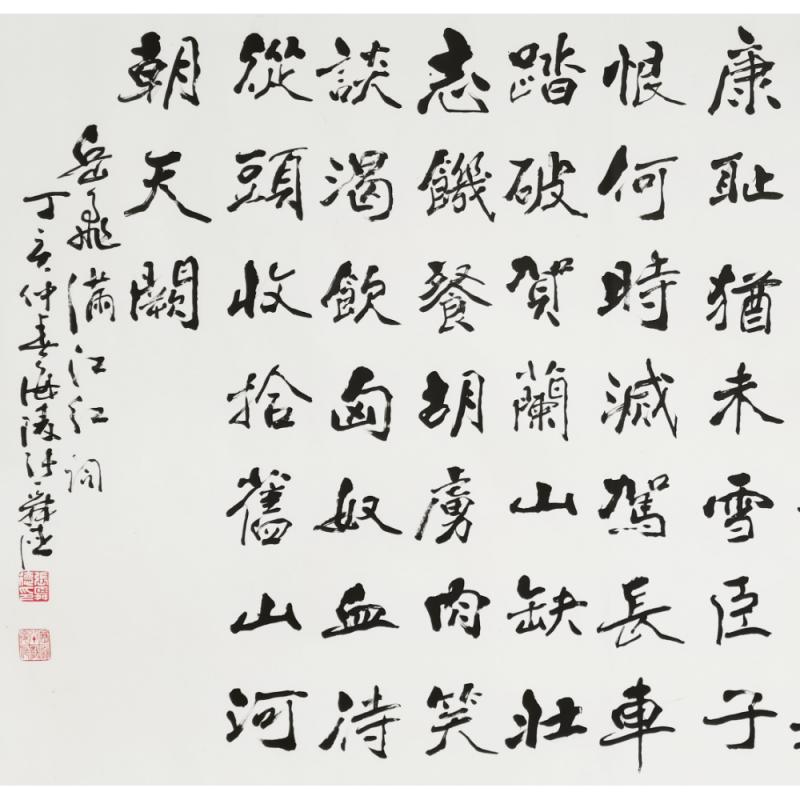 康耻猶未雪臣子
恨何時滅駕長車
踏破賀蘭山缺壯
志饑餐胡虜肉笑
談渴飲匈奴血待
從頭收拾舊山河
朝天闕
岳飛滿江紅詞
丁亥仲春海陵張舜德